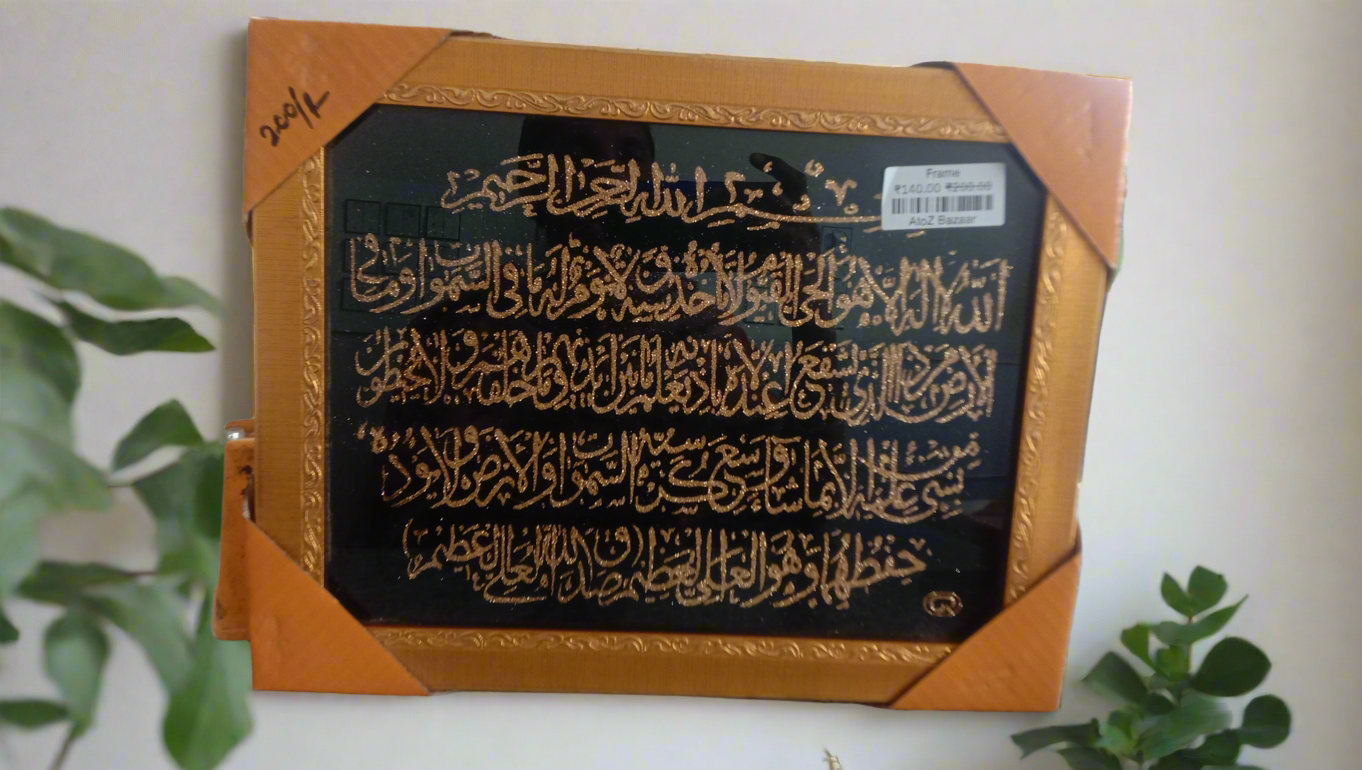 200/-
Frame
₹140.00 ₹200.00
AtoZ Bazaar
بسم الله الرحمن الرحيم
الله لا اله الا هو الحي القيوم لا تاخذه سنة ولا نوم له ما في السموات وما في
الارض من ذا الذي يشفع عنده الا باذنه يعلم ما بين ايديهم وما خلفهم ولا يحيطون
بشيء من علمه الا بما شاء وسع كرسيه السموات والارض ولا يؤده
حفظهما وهو العلي العظيم (صدق الله العلي العظيم)